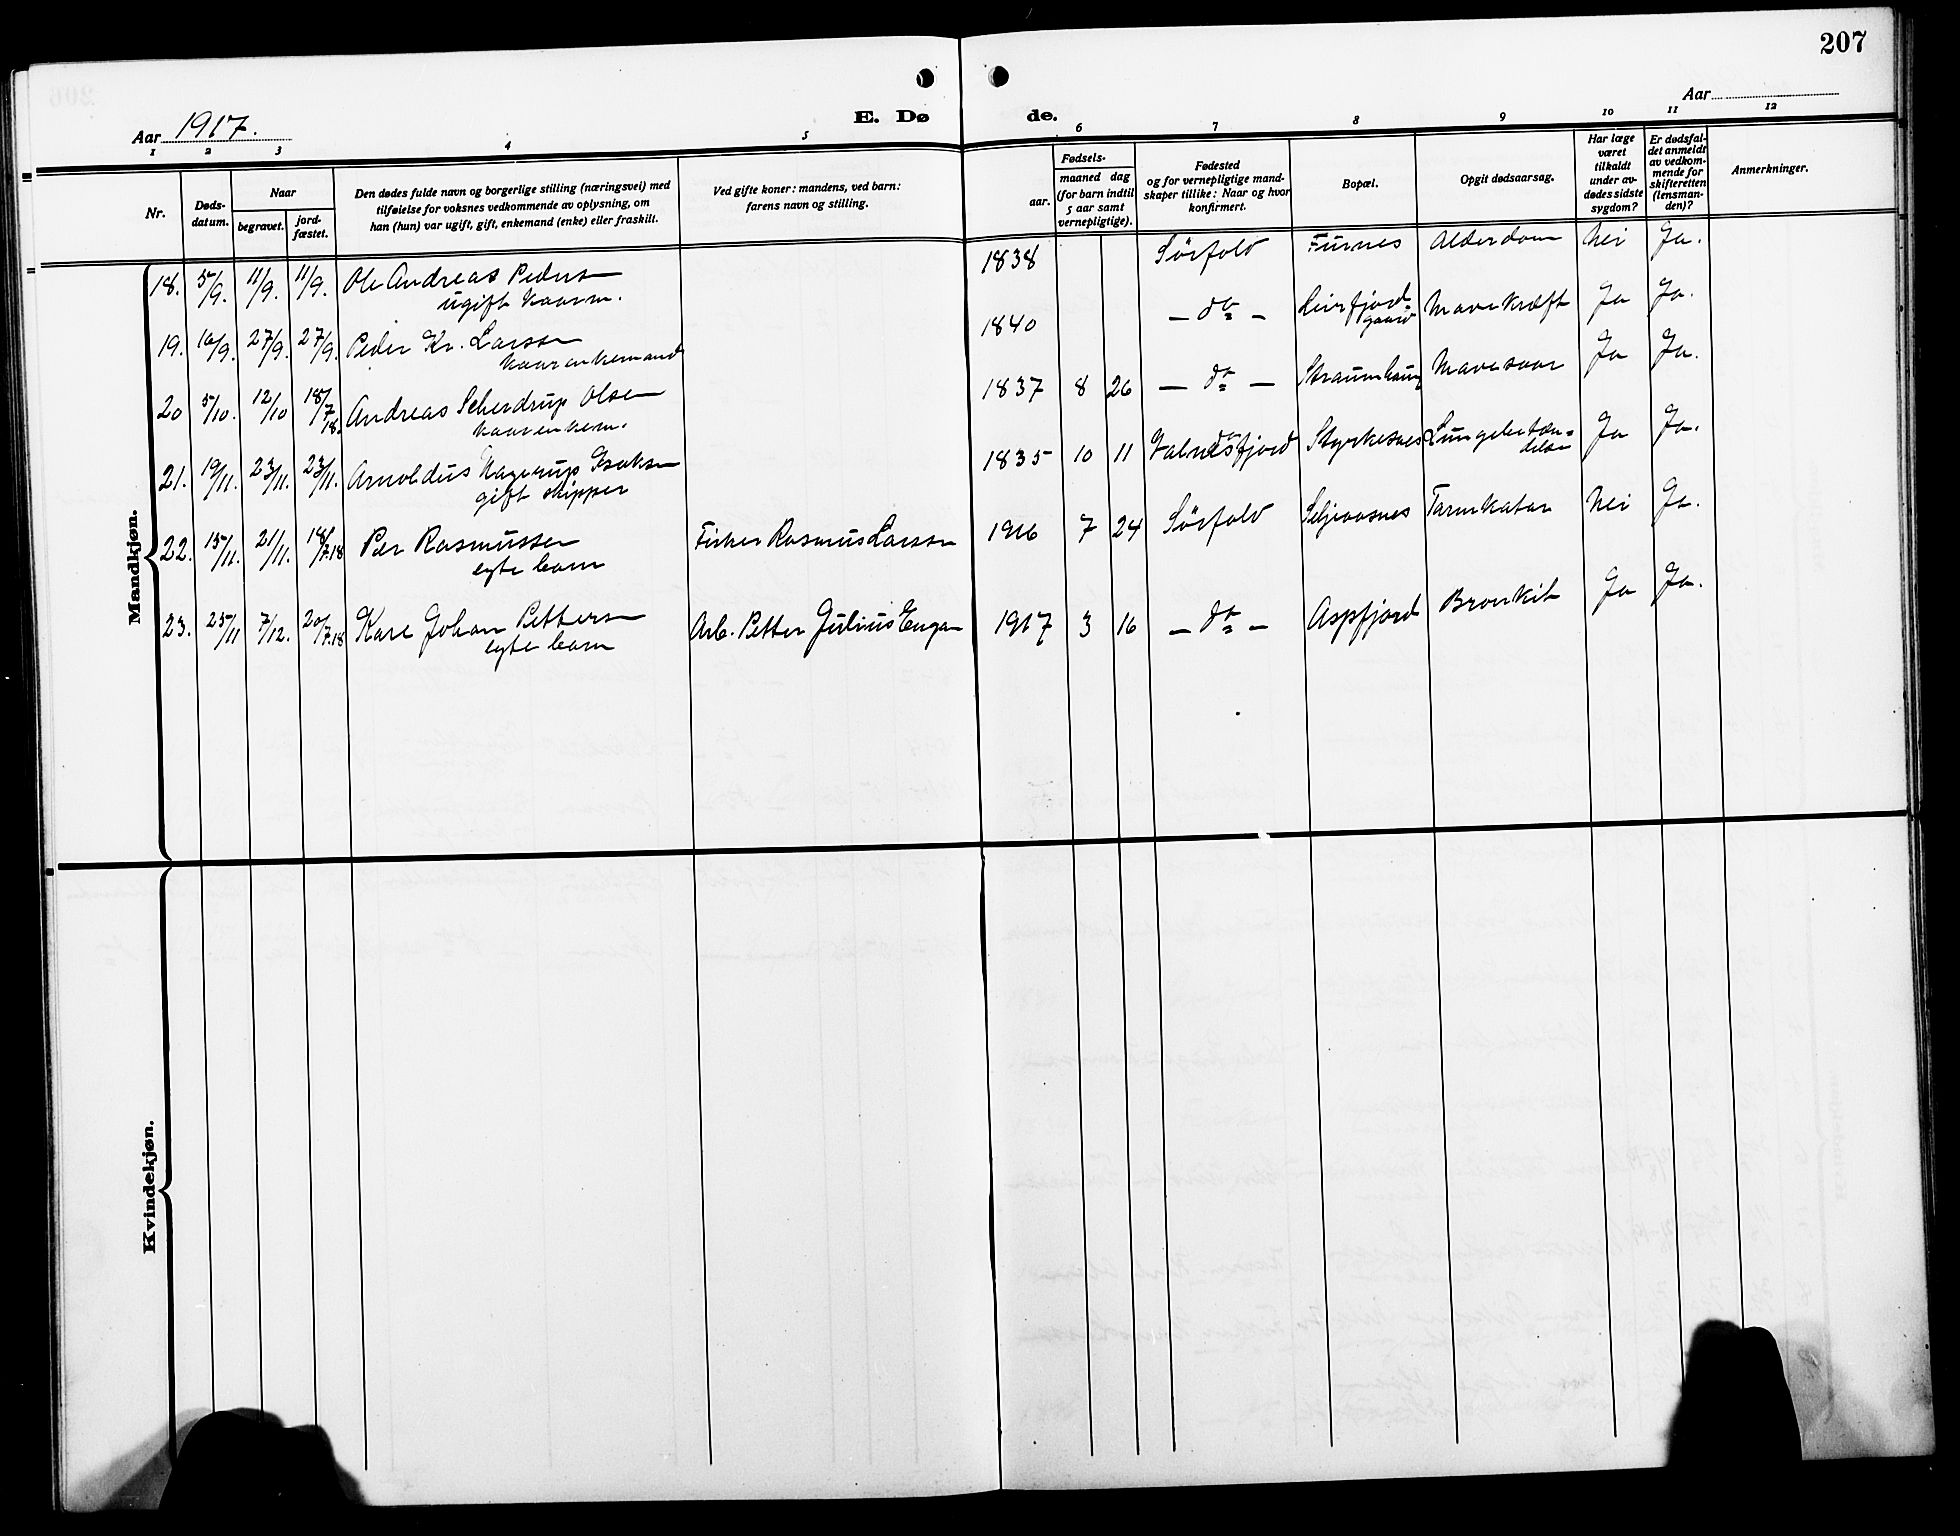 207
Aar 1917.
E. Dø de.
Aar
1 2 3 4 5 6 7 8 9 10 11 12
Nr.
Døds-
datum.
Naar
begravet.
jord-
fæstet.
Den dødes fulde navn og borgerlige stilling (næringsvei) med
tilføielse for voksnes vedkommende av oplysning, om
han (hun) var ugift, gift, enkemand (enke) eller fraskilt.
Ved gifte koner: mandens, ved barn:
farens navn og stilling.
Fødsels-
aar.
maaned dag
(for barn indtil
5 aar samt
vernepligtige).
Fødested
og for vernepligtige mand-
skaper tillike: Naar og hvor
konfirmert.
Bopæl.
Opgit dødsaarsag.
Har læge
været
tilkaldt
under av-
dødes sidste
sygdom?
Er dødsfal-
det anmeldt
av vedkom-
mende for
skifteretten
(lensman-
den)?
Anmerkninger.
Mandkjøn.
18. 5/9. 11/9. 11/9. Ole Andreas Peders 1838 Sörfold Furnes Alderdom Nei Ja.
ugift kaarm.
19. 16/9. 27/9. 27/9. Peder Kr. Larssen 1840 - do - Leirfjord- Mavekræft Ja Ja.
gaard
kaarenkemand
20 5/10. 12/10 18/7 18. Andreas Scherdrup Olsen 1837 8 26 - do - Straumhaug Mavesaar Ja Ja.
kaarenkem.
21. 19/11. 23/11. 23/11. Arnoldus Hagerup Isaksen 1835 10 11 Valnesfjord Styrkesnes Lungebetæn- Ja Ja.
delse
gift skipper
22. 15/11. 21/11. 18/7.18 Per Rasmussen Fisker Rasmus Larssen 1916 7 24 Sörfold Seljeaasnes Tarmkatar Nei Ja.
egte barn
23. 25/11 7/12. 20/7.18 Kare Johan Pettersen Arb. Petter Julius Engan 1917 3 16 - do - Aspfjord Bronkit Ja Ja.
egte barn
Kvindekjøn.